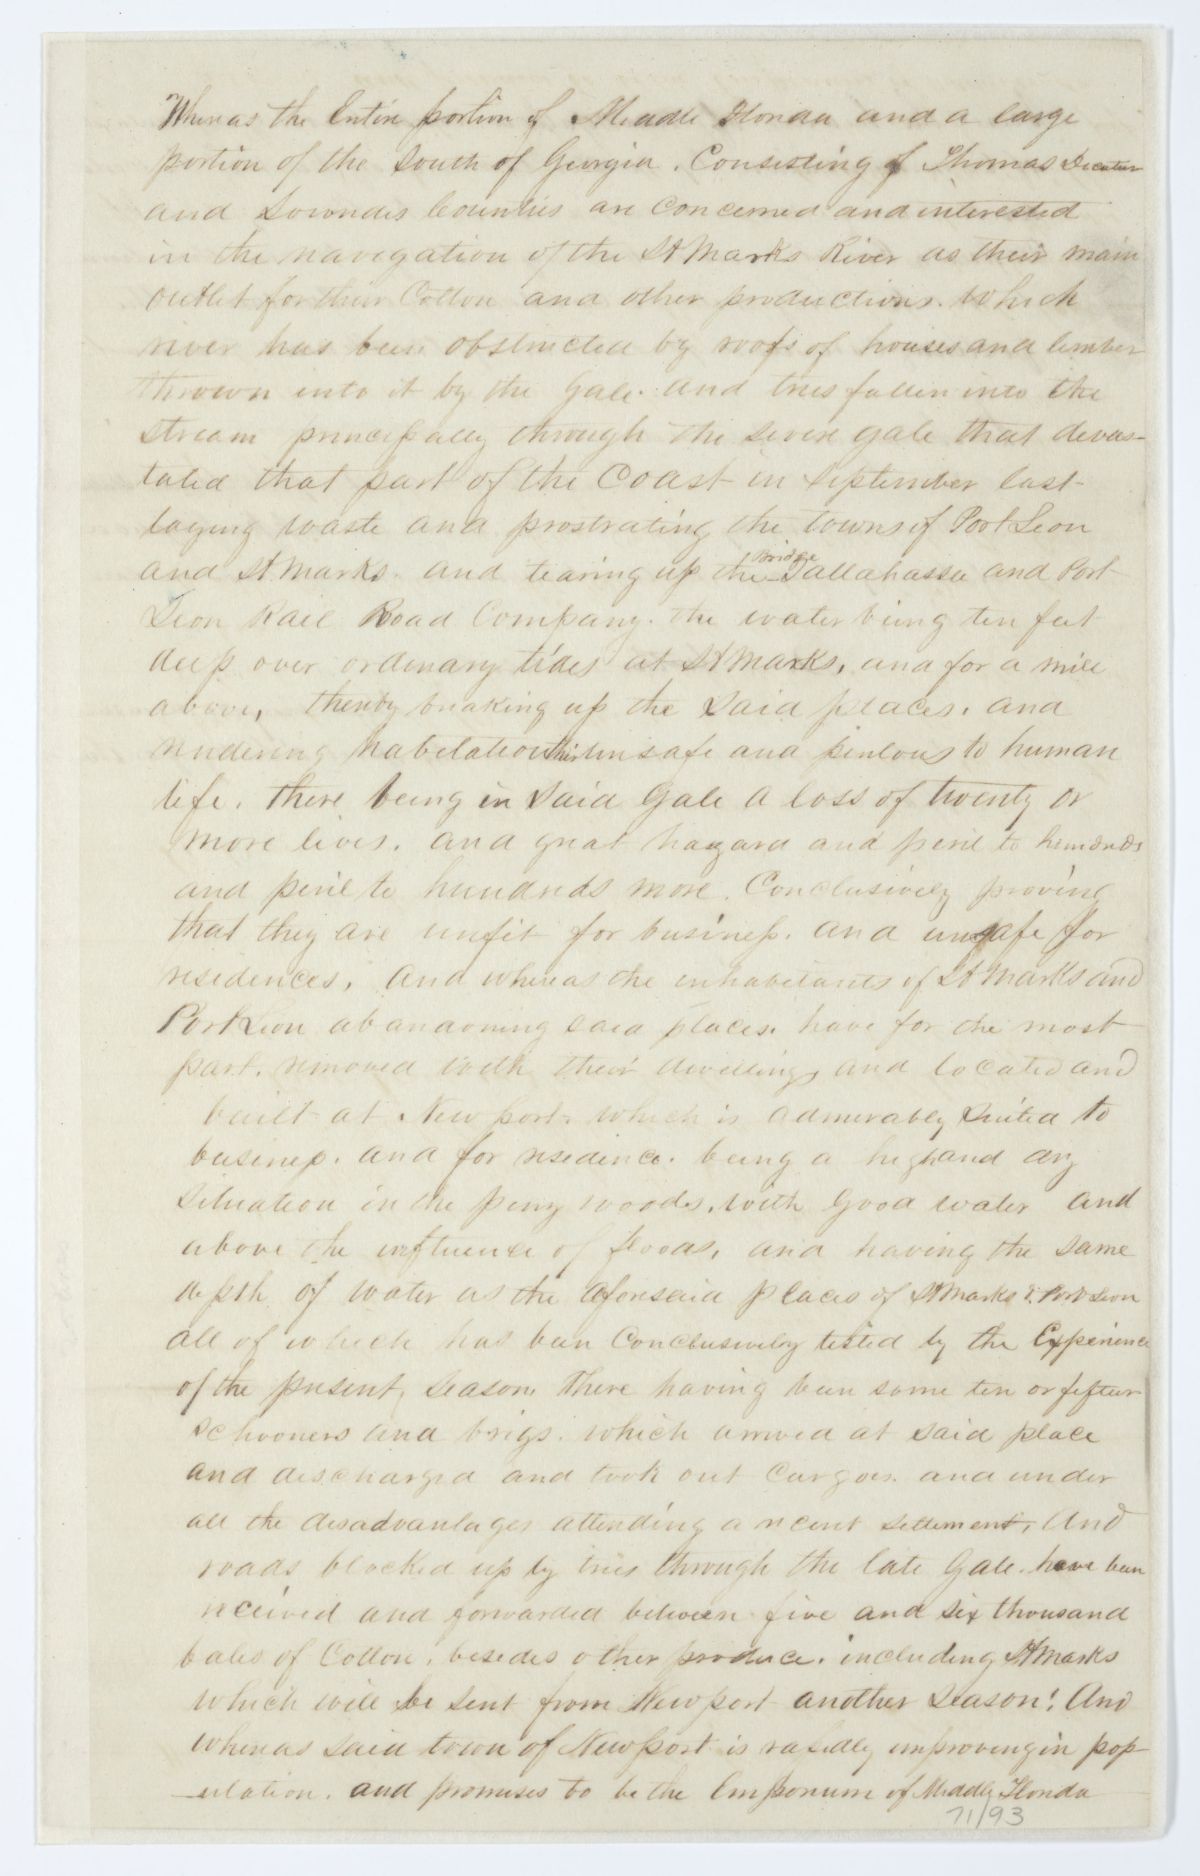 Whereas the Entire portion of Middle Florida and a large
portion of the South of Georgia. Consisting of Thomas Decatur
and Lowndes Counties are concerned and interested
in the navigation of the St Marks River as their main
outlet for their Cotton and other productions. Which
river has been obstructed by roofs of houses and timber
thrown into it by the Gale. and trees fallen into the
stream principally through the severe gale that devas-
tated that part of the Coast in September last
laying waste and prostrating the towns of Port Leon
and St Marks. and tearing up the Bridge Tallahassee and Port
Leon Rail Road Company. the water being ten feet
deep over ordinary tides at St Marks, and for a mile
above, thereby breaking up the said places. and
rendering habitation their unsafe and perilous to human
life. there being in said Gale a loss of twenty or
more lives. and great hazard and peril to hundreds
and peril to hundreds more. Conclusively proving
that they are unfit for business. and unsafe for
residences. And whereas the inhabitants of St Marks and
Port Leon abandoning said places. have for the most
part. removed with their dwellings and located and
built at New port. which is admirably suited to
business. and for residence. being a high and dry
situation in the piny woods. with good water and
above the influence of floods, and having the same
depth of water as the aforesaid places of St Marks & Port Leon
all of which has been Conclusively tested by the Experience
of the present season. there having been some ten or fifteen
schooners and brigs. which arrived at said place
and discharged and took out cargoes. and under
all the disadvantages attending a recent settlement. And
roads blocked up by trees through the late Gale. have been
received and forwarded between five and six thousand
bales of Cotton. besides other produce. including St Marks
which will be sent from Newport another season. And
whereas said town of Newport is rapidly improving in pop-
-ulation. and promises to be the Emporium of Middle Florida
71/93